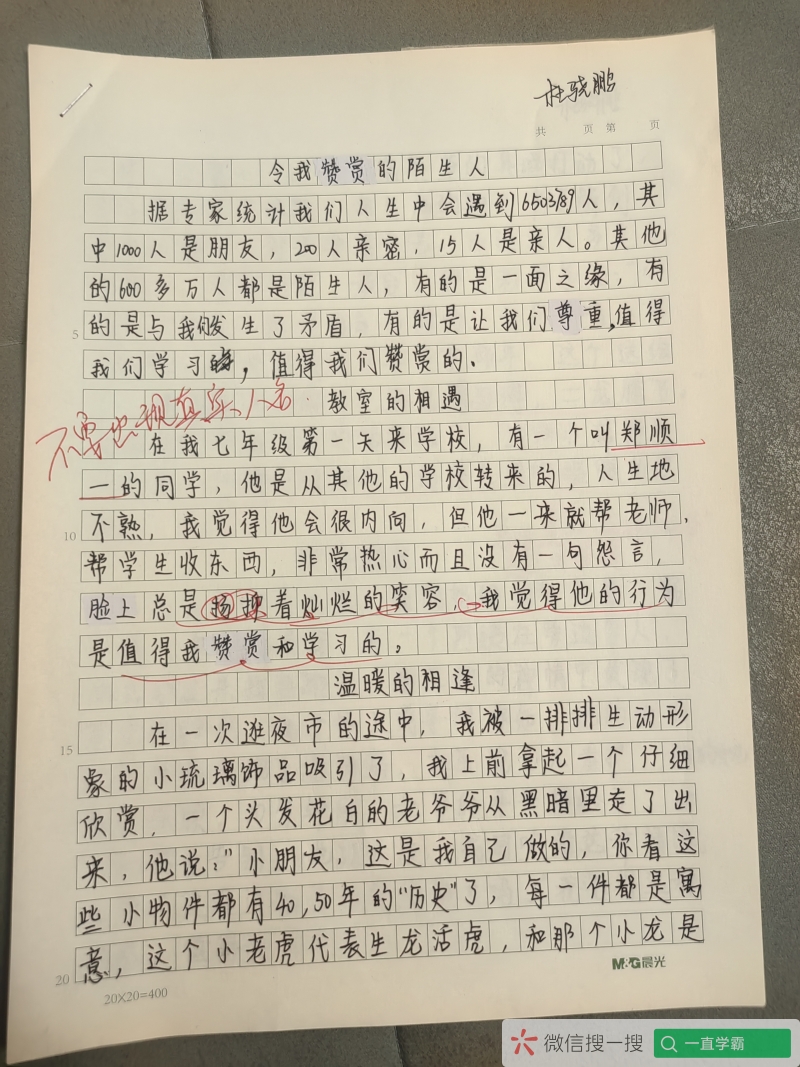 杜骁鹏
共 页 第 页
令我赞赏的陌生人
据专家统计我们人生中会遇到6503789人，其
中1000人是朋友，200人亲密，15人是亲人。其他
的600多万人都是陌生人，有的是一面之缘，有
5 的是与我们发生了矛盾，有的是让我们尊重，值得
我们学习的，值得我们赞赏的、
不要出现真实人名
教室的相遇
在我七年级第一天来学校，有一个叫郑顺
一的同学，他是从其他的学校转来的，人生地
10 不熟，我觉得他会很内向，但他一来就帮老师、
帮学生收东西，非常热心而且没有一句怨言，
脸上总是着灿烂的笑容，我觉得他的行为
是值得我赞赏和学习的。
温暖的相逢
15 在一次逛夜市的途中，我被一排排生动形
象的小琉璃饰品吸引了，我上前拿起一个仔细
欣赏，一个头发花白的老爷爷从黑暗里走了出
来，他说："小朋友，这是我自己做的，你看这
些小物件都有40,50年的"历史"了，每一件都是寓
20 意，这个小老虎代表生龙活虎，和那个小龙是
20×20=400
M&G晨光
微信搜一搜
一直学霸